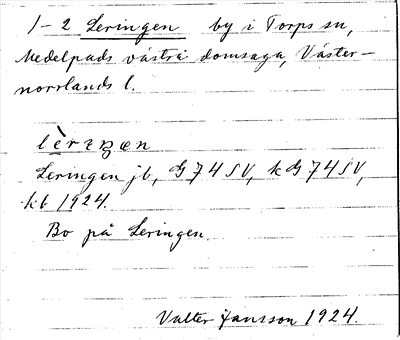 1-2 Leringen by i Torps sn,
Medelpads västra domsaga, Väster-
norrlands l.
Leringen jb, G 74 SV, kG 74 SV,
kb 1924.
Bo på Leringen.
Valter Jansson 1924.